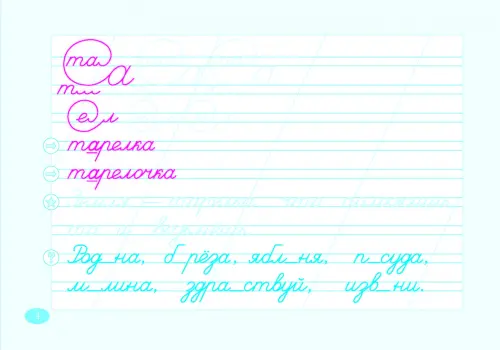 та а
ел
тарелка
тарелочка
Род_на, б_рёза, ябл_ня, п_суда,
м_лина, здра_ствуй, изв_ни.